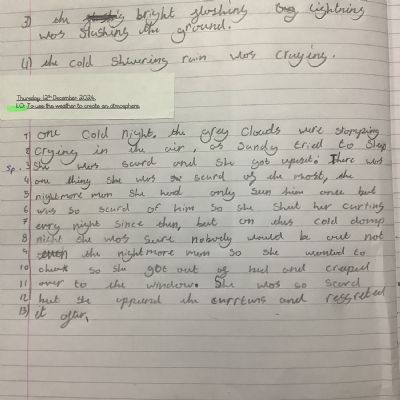 3) the bright flashing lightning
was flushing the ground.
4) the cold shivering rain was craying.
Thursday 12th December 2024
LO: To use the weather to create an atmosphere
1 one cold night, the grey clouds were stopping
2 crying in the air, as Sandy tried to Slep
Sp. 3 She was scard and she got upset. There was
4 one thing She was scard of the most, the
5 nightmore mun She had only Sun him once but
6 was so scard of him So she Shut her curtins
7 evry night since then, but on this cold damp
8 night she was Sure nobody would be out not
9 the nightmore mun so She wanted to
10 cheak so she got out of bed and creeped
11 over to the window. She was so scard
12 but she oppund the currtuns and ressreted
13) it after.